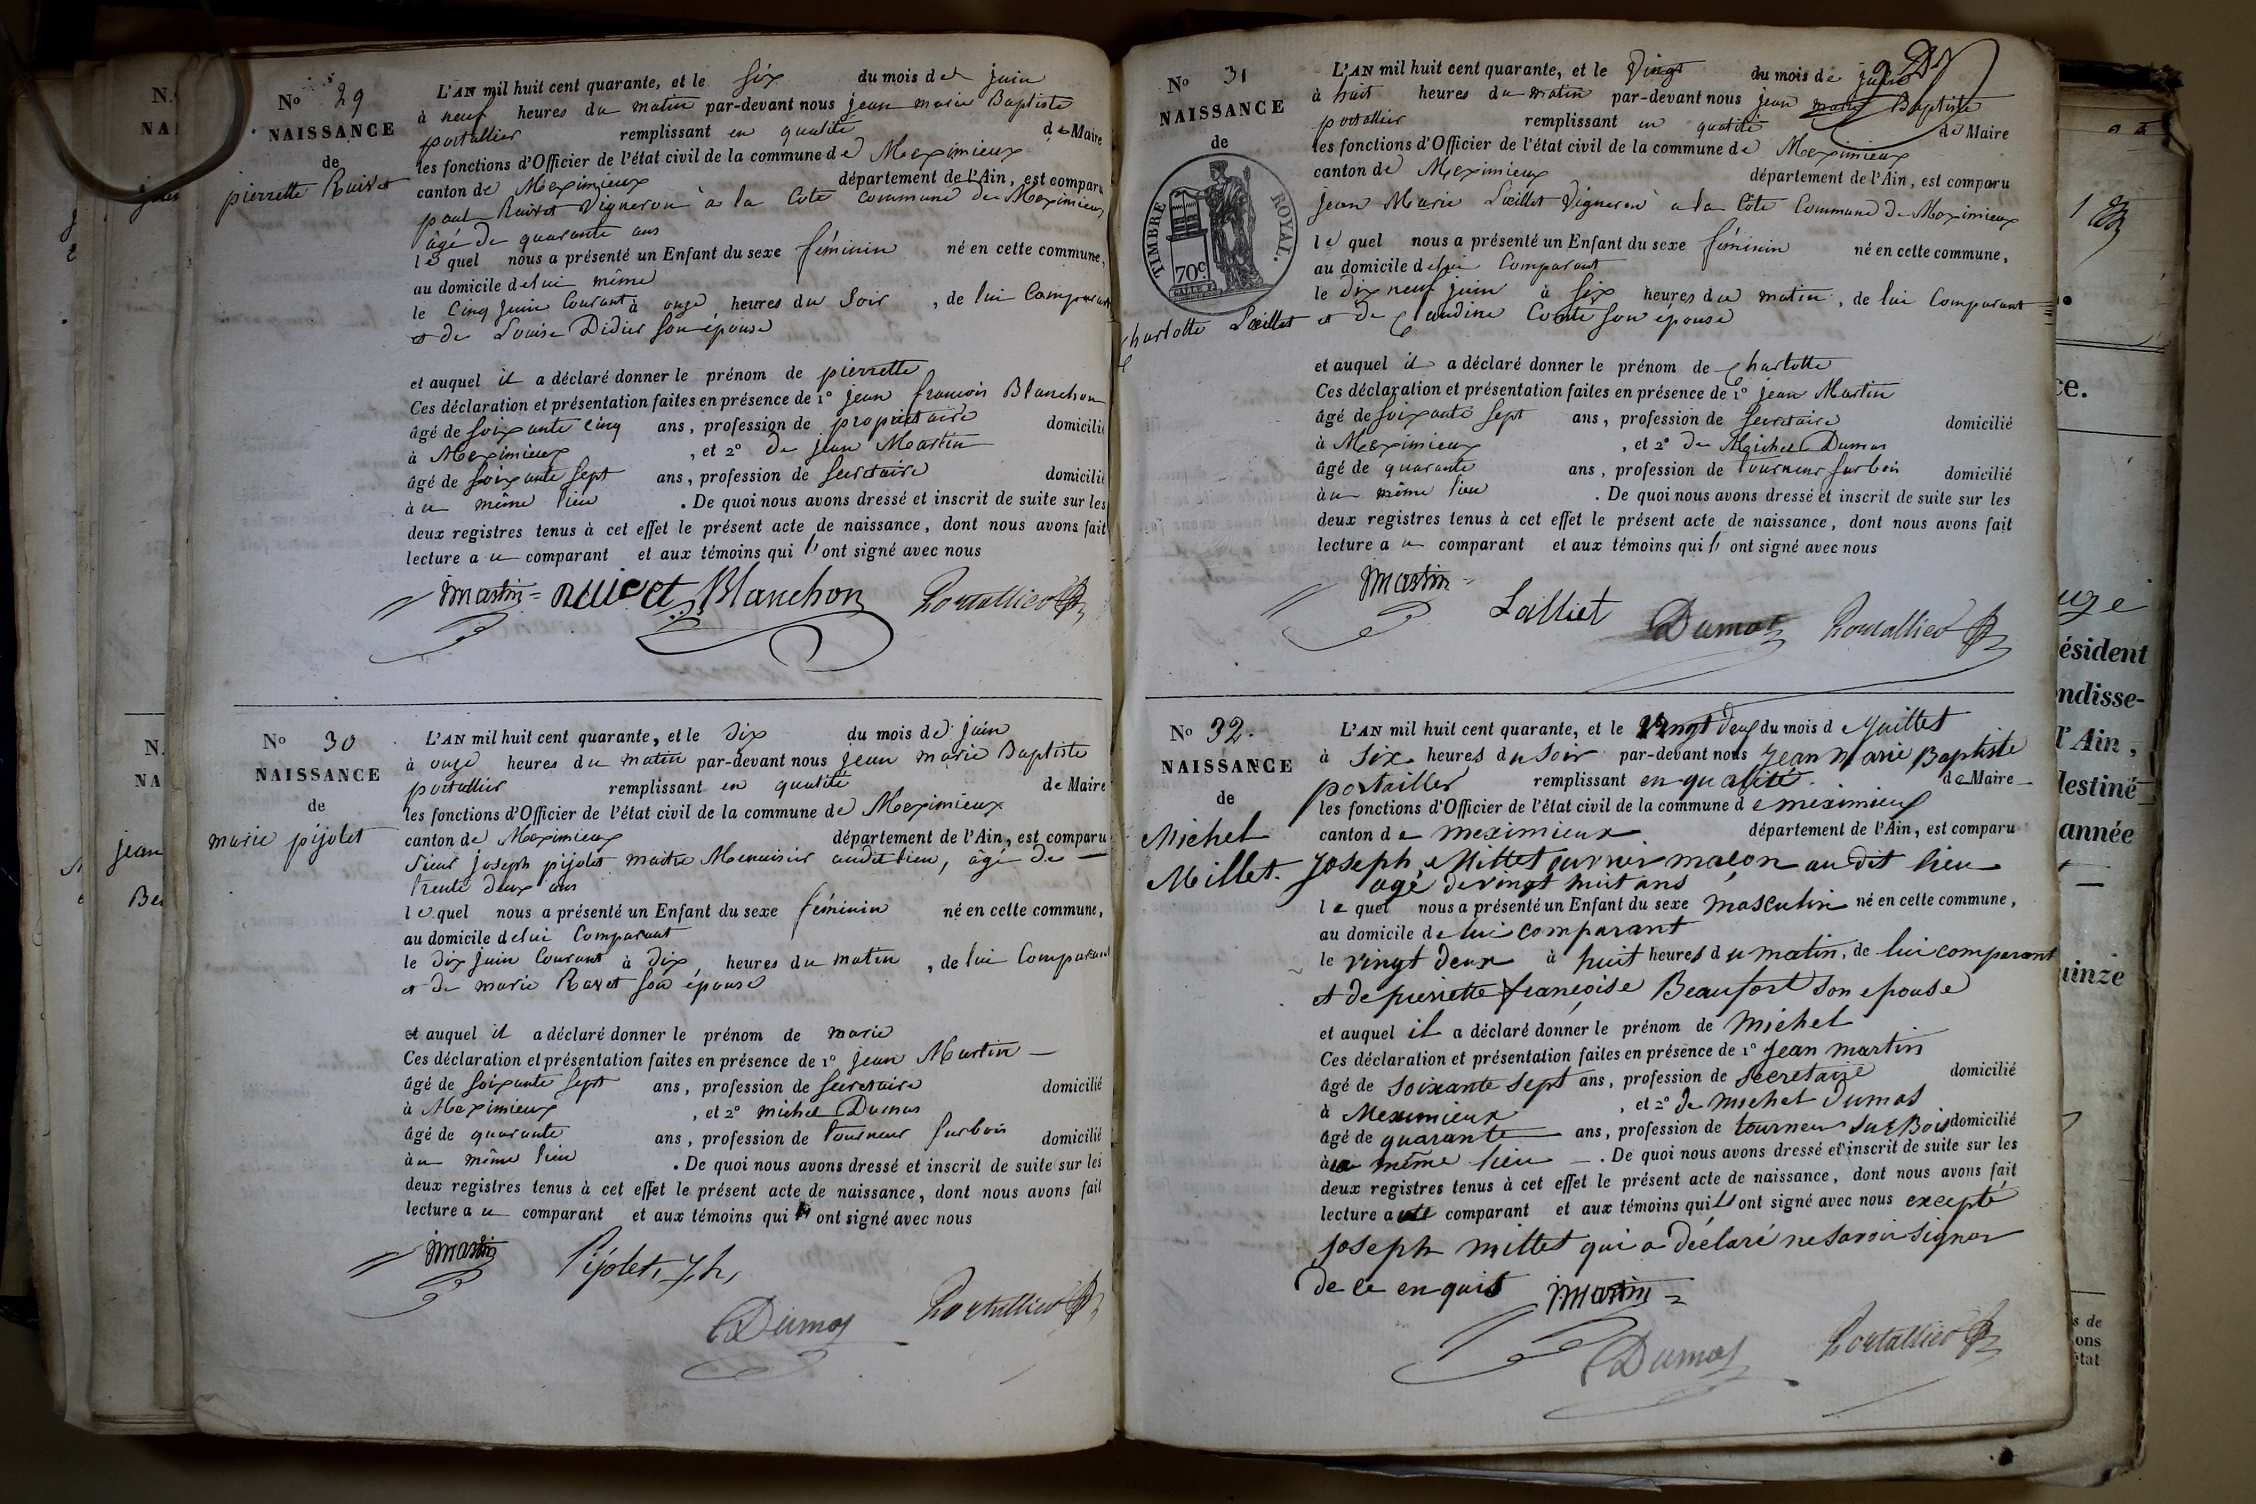 No 29
NAISSANCE
de
pierrette Ruivet
L'AN mil huit cent quarante, et le six du mois de juin
à neuf heures du matin par-devant nous jean marie Baptiste
portallier remplissant en qualité de Maire
les fonctions d'Officier de l'état civil de la commune de Meximieux
canton de Meximieux département de l'Ain, est comparu
paul Ruivet Vigneron à la Cote Commune de Meximieux
âgé de quarante ans
le quel nous a présenté un Enfant du sexe féminin né en cette commune,
au domicile de lui même
le Cinq juin Courant à onze heures du soir, de lui Comparant
et de Louise Didier son épouse
et auquel il a déclaré donner le prénom de pierrette
Ces déclaration et présentation faites en présence de 1° jean francois Blanchon
âgé de soixante cinq ans, profession de propriétaire domicilié
à Meximieux, et 2° de jean Martin
âgé de soixante sept ans, profession de secretaire domicilié
à u même lieu. De quoi nous avons dressé et inscrit de suite sur les
deux registres tenus à cet effet le présent acte de naissance, dont nous avons fait
lecture a u comparant et aux témoins qui l' ont signé avec nous
Martin = Ruivet Blanchon Portallier
No 30
NAISSANCE
de
marie pijolet
L'AN mil huit cent quarante, et le dix du mois de juin
à onze heures du matin par-devant nous jean marie Baptiste
portallier remplissant en qualité de Maire
les fonctions d'Officier de l'état civil de la commune de Meximieux
canton de Meximieux département de l'Ain, est comparu
Sieur joseph pijolet maitre Menuisier audit lieu, âgé de
trente deux ans
le quel nous a présenté un Enfant du sexe féminin né en cette commune,
au domicile de lui Comparant
le dix juin Courant à dix heures du matin, de lui Comparant
et de marie Ravet son épouse
et auquel il a déclaré donner le prénom de marie
Ces déclaration et présentation faites en présence de 1° jean Martin
âgé de soixante sept ans, profession de secretaire domicilié
à Meximieux, et 2° michel Dumas
âgé de quarante ans, profession de tourneur sur bois domicilié
à u même lieu. De quoi nous avons dressé et inscrit de suite sur les
deux registres tenus à cet effet le présent acte de naissance, dont nous avons fait
lecture a u comparant et aux témoins qui ont signé avec nous
Martin Pijolet, Jh,
Dumas Portallier
No 31
NAISSANCE
de
TIMBRE ROYAL.
70c.
Charlotte Lœillet
L'AN mil huit cent quarante, et le Vingt du mois de juin
à huit heures du matin par-devant nous jean marie Baptiste
portallier remplissant en qualité de Maire
les fonctions d'Officier de l'état civil de la commune de Meximieux
canton de Meximieux département de l'Ain, est comparu
jean Marie Lœillet Vigneron à la Côte Commune de Meximieux
le quel nous a présenté un Enfant du sexe féminin né en cette commune,
au domicile de lui Comparant
le dix neuf juin à six heures du matin, de lui Comparant
et de Claudine Comte son épouse
et auquel il a déclaré donner le prénom de Charlotte
Ces déclaration et présentation faites en présence de 1° jean Martin
âgé de soixante sept ans, profession de secretaire domicilié
à Meximieux, et 2° de Michel Dumas
âgé de quarante ans, profession de tourneur sur bois domicilié
à u même lieu. De quoi nous avons dressé et inscrit de suite sur les
deux registres tenus à cet effet le présent acte de naissance, dont nous avons fait
lecture a u comparant et aux témoins qui l' ont signé avec nous
Martin =
Lalliet Dumas Portallier
No 32.
NAISSANCE
de
Michel
Millet.
L'AN mil huit cent quarante, et le vingt deux du mois d e Juillet
à Six heures du Soir par-devant nous Jean Marie Baptiste
portailler remplissant en qualité de Maire
les fonctions d'Officier de l'état civil de la commune d e meximieux
canton de meximieux département de l'Ain, est comparu
Joseph Millet ouvrier maçon au dit lieu
agé de vingt huit ans
le quel nous a présenté un Enfant du sexe masculin né en cette commune,
au domicile de lui comparant
le vingt deux à huit heures du matin, de lui comparant
et de pierrette françoise Beaufort son epouse
et auquel il a déclaré donner le prénom de Michel
Ces déclaration et présentation faites en présence de 1° Jean martin
âgé de soixante sept ans, profession de secretaire domicilié
à Meximieux, et 2° de michel dumas
âgé de quarante ans, profession de tourneur sur Bois domicilié
à u même lieu. De quoi nous avons dressé et inscrit de suite sur les
deux registres tenus à cet effet le présent acte de naissance, dont nous avons fait
lecture au comparant et aux témoins qui l' ont signé avec nous excepté
Joseph millet qui a déclaré ne savoir signer
de ce enquis Martin =
Dumas Portallier
ce.
uze
ésident
ndisse-
l'Ain,
destiné
année
uinze
s de
ons
état